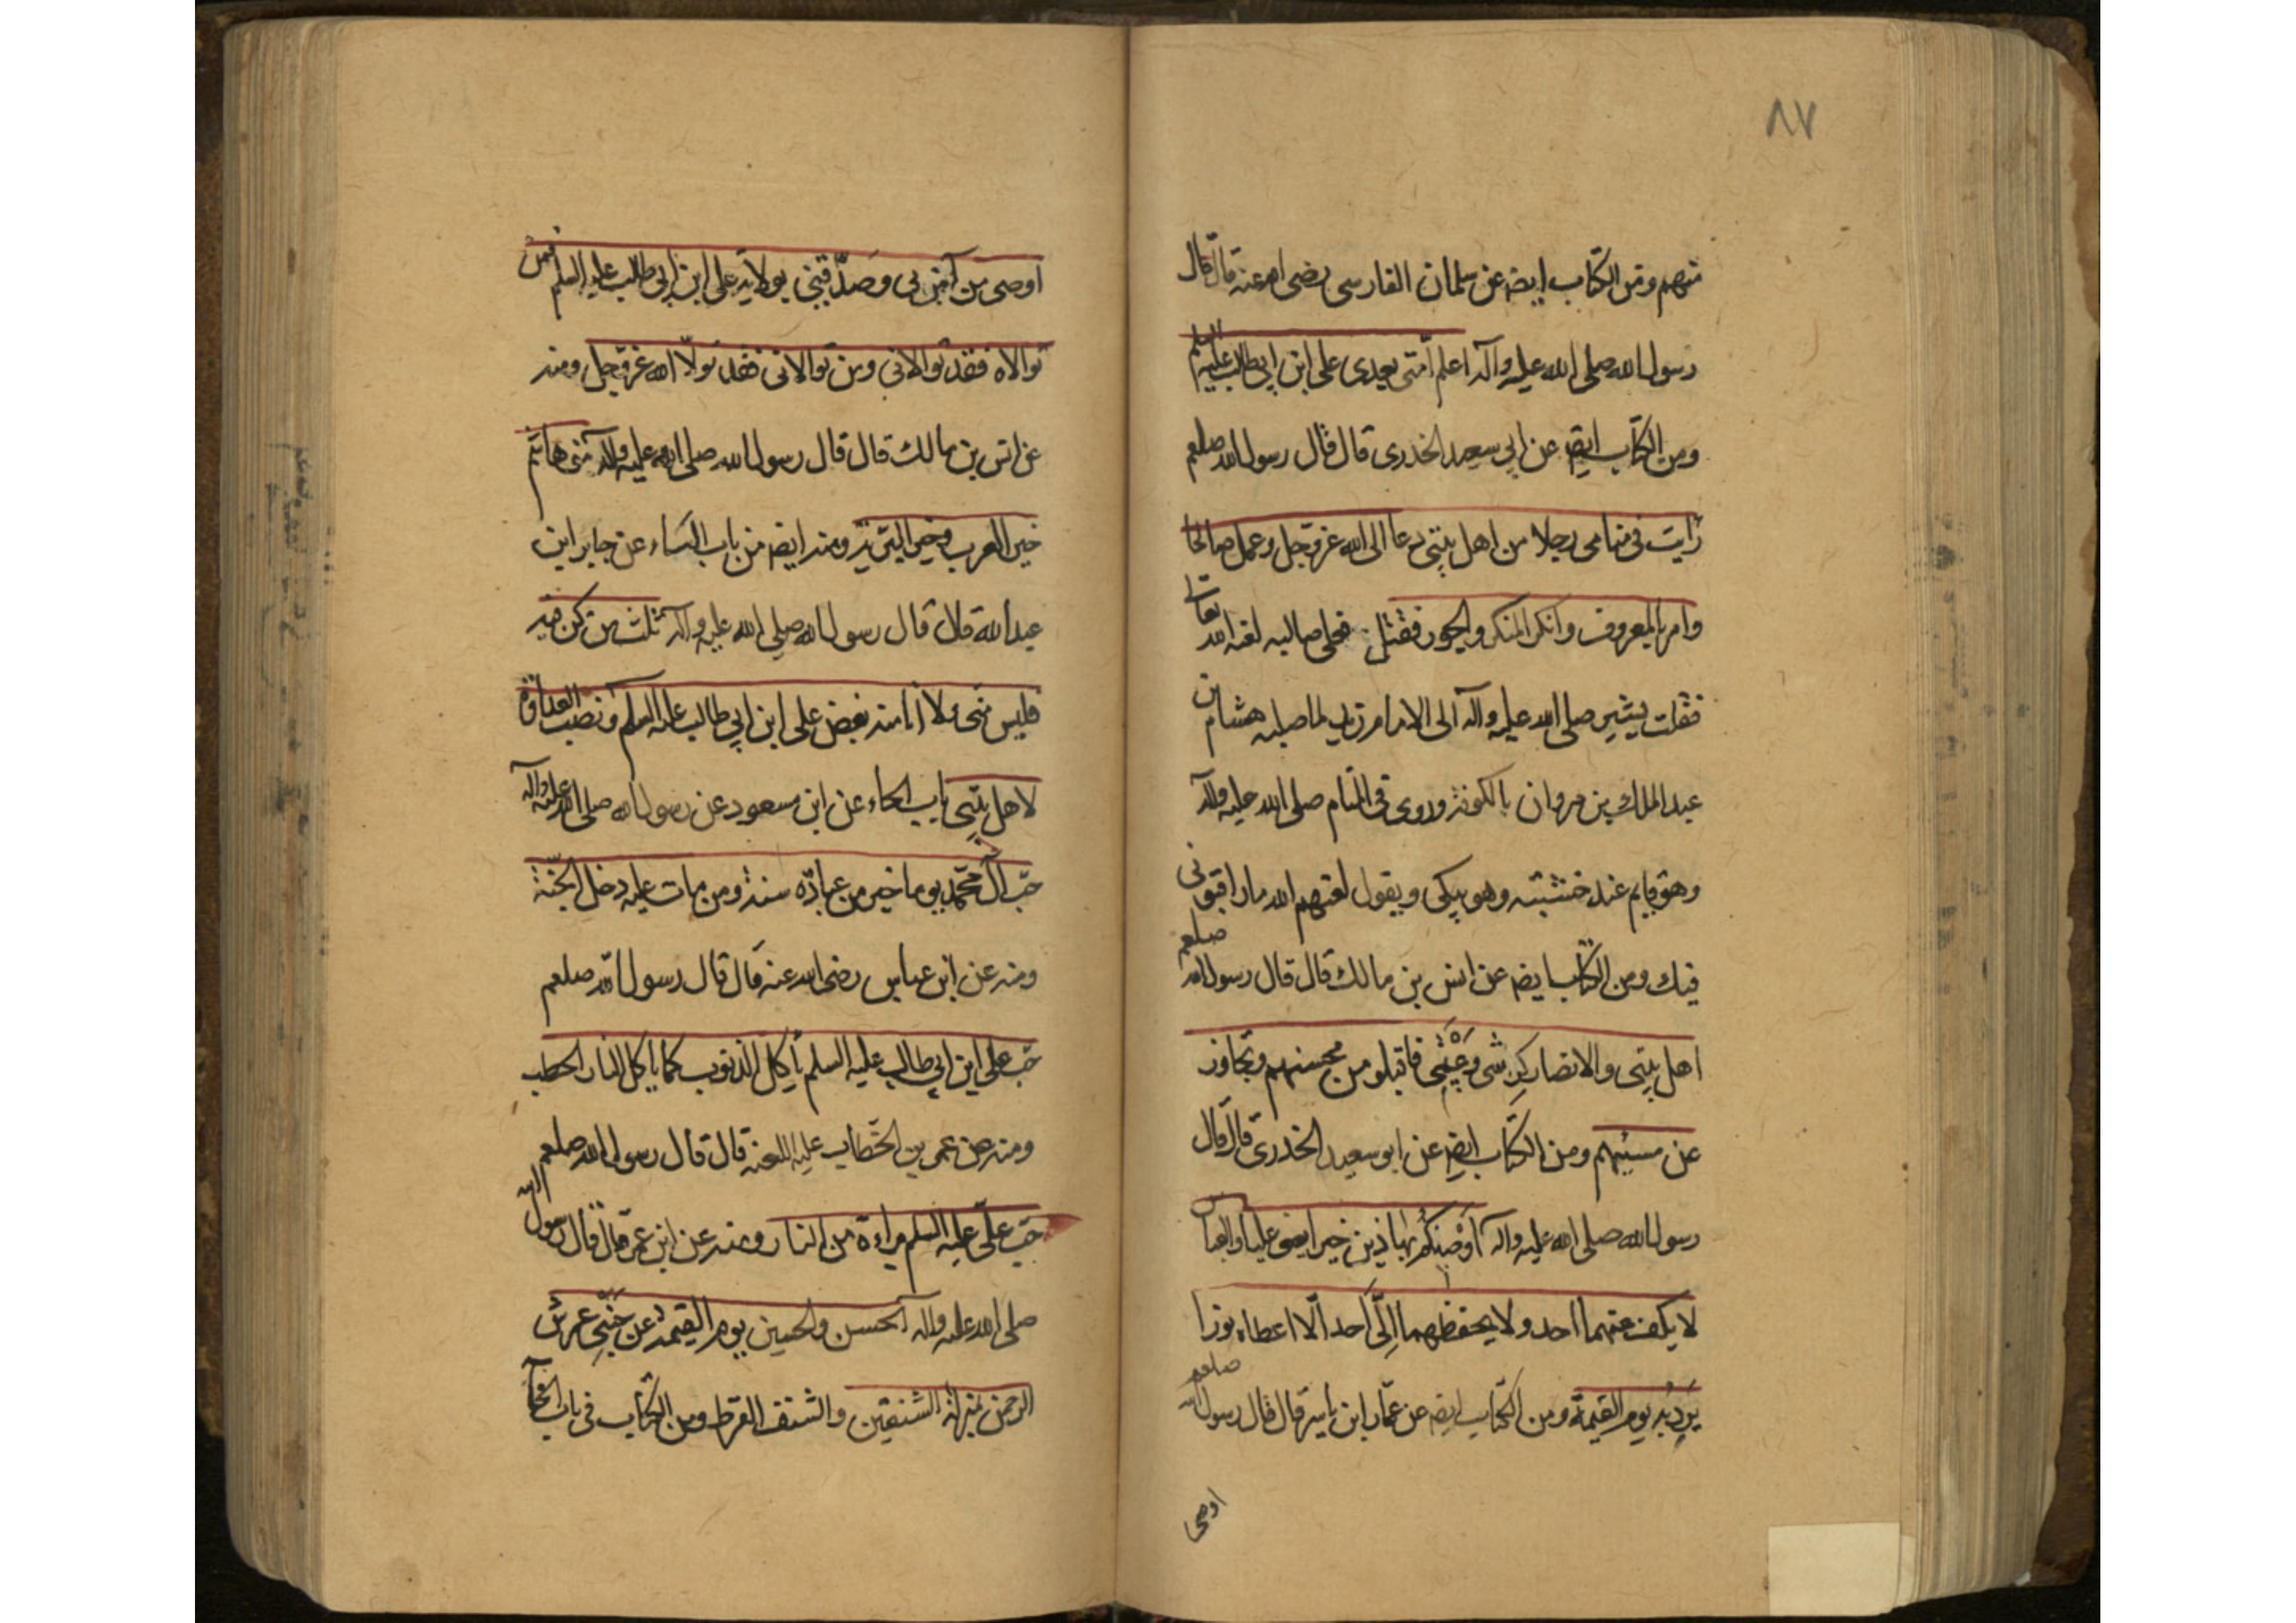 ٨٧
منهم ومن الكتاب ايضا عن سلمان الفارسى رضى الله عنه قال قال
رسول الله صلى الله عليه وآله اعلم امتى بعدى على ابن ابى طالب عليه السلم
ومن الكتاب ايضا عن ابى سعيد الخدرى قال قال رسول الله صلعم
رايت فى منامى رجلا من اهل بيتى دعا الى الله عز وجل وعمل صالحا
وامر بالمعروف وانكر المنكر والجور فقتل فعلى صالبه لعنة الله تعالى
فقلت يشير صلى الله عليه وآله الى الامام زيد لما صلبه هشام بن
عبد الملك بن مروان بالكوفة وروى فى المنام صلى الله عليه وآله
وهو قايم عند خشبته وهو يبكى ويقول لعنهم الله ما راقبونى
فيك ومن الكتاب ايضا عن انس بن مالك قال قال رسول الله صلعم
اهل بيتى والانصار كرشى وعيبتى فاقبلو من محسنهم وتجاوز
عن مسيئهم ومن الكتاب ايضا عن ابو سعيد الخدرى قال قال
رسول الله صلى الله عليه وآله اوصيكم بهاذين خيرا يعنى عليا والعباس
لا يكف عنهما احد ولا يحفظهما الى احد الا اعطاه نورا
يرد به يوم القيمة ومن الكتاب ايضا عن عمار ابن ياسر قال قال رسول الله صلعم
اوصى
اوصى من آمن بى وصدقنى بولاية على ابن ابى طالب عليه السلم فمن
توالاه فقد توالانى ومن توالانى فقد تولا الله عز وجل ومنه
عن انس بن مالك قال قال رسول الله صلى الله عليه وآله بنى هاشم
خير العرب وخير البرية ومنه ايضا من باب الثاء عن جابر ابن
عبد الله قال قال رسول الله صلى الله عليه وآله ثلث من كن فيه
فليس منى ولا انا منه بغض على ابن ابى طالب عليه السلم ونصب العداوة
لاهل بيتى باب الحاء عن ابن مسعود عن رسول الله صلى الله عليه وآله
حب آل محمد يوما خير من عبادة سنة ومن مات عليه دخل الجنة
ومنه عن ابن عباس رضى الله عنه قال قال رسول الله صلعم
حب على ابن ابى طالب عليه السلم ياكل الذنوب كما ياكل النار الحطب
ومنه عن عمر بن الخطاب عليه اللعنة قال قال رسول الله صلعم
حب على عليه السلم براءة من النار ومنه عن ابن عمر قال قال رسول الله
صلى الله عليه وآله الحسن والحسين يوم القيمة عن جنبى عرش
الرحمن بمنزلة الشنفين والشنف القرط ومن الكتاب فى باب